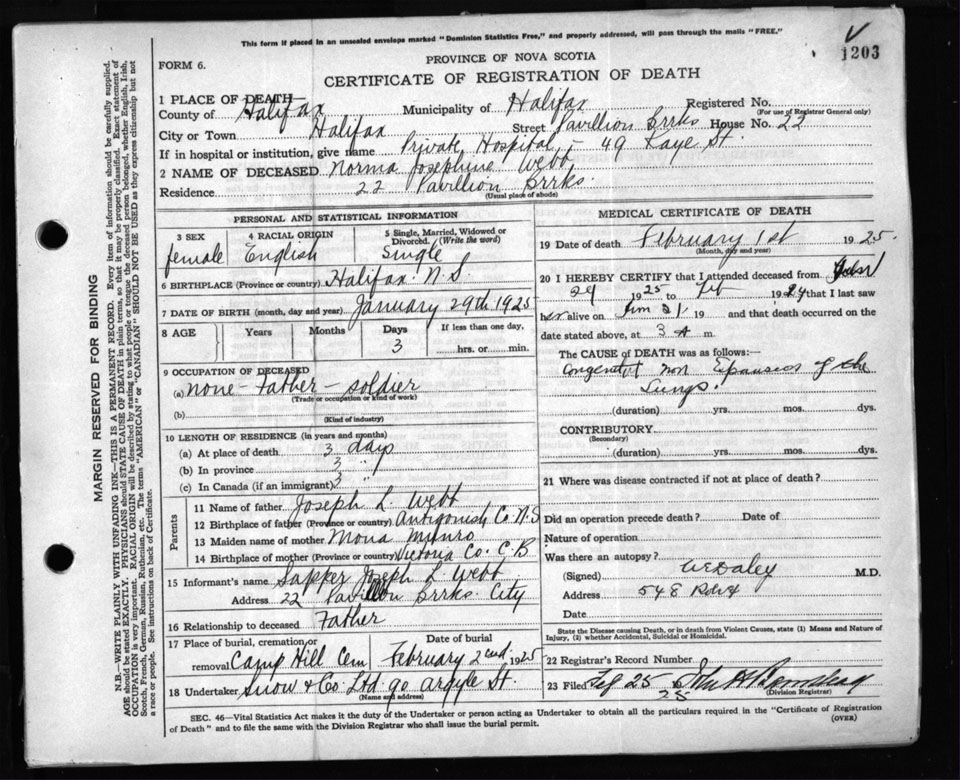 This form if placed in an unsealed envelope marked "Dominion Statistics Free," and properly addressed, will pass through the mails "FREE."
1203
FORM 6.
PROVINCE OF NOVA SCOTIA
CERTIFICATE OF REGISTRATION OF DEATH
1 PLACE OF DEATH
County of Halifax Municipality of Halifax Registered No.
(For use of Registrar General only)
City or Town Halifax Street Pavillion Brrks House No. 22
If in hospital or institution, give name Private Hospital - 49 Kaye St
2 NAME OF DECEASED Norma Josephine Webb
Residence 22 Pavillion Brrks.
(Usual place of abode)
PERSONAL AND STATISTICAL INFORMATION
3 SEX
female
4 RACIAL ORIGIN
English
5 Single, Married, Widowed or Divorced. (Write the word)
Single
6 BIRTHPLACE (Province or country) Halifax N.S.
7 DATE OF BIRTH (month, day and year) January 29th 1925
8 AGE Years Months Days If less than one day,
3 hrs. or min.
9 OCCUPATION OF DECEASED
(a) none - Father - soldier
(Trade or occupation or kind of work)
(b)
(Kind of industry)
10 LENGTH OF RESIDENCE (in years and months)
(a) At place of death 3 days
(b) In province 3 "
(c) In Canada (if an immigrant) 3 "
Parents
11 Name of father Joseph L. Webb
12 Birthplace of father (Province or country) Antigonish Co. N.S
13 Maiden name of mother Mona Munro
14 Birthplace of mother (Province or country) Victoria Co. C.B
15 Informant's name Sapper Joseph L Webb
Address 22 Pavillion Brrks. City
16 Relationship to deceased Father
17 Place of burial, cremation or removal Camp Hill Cem
Date of burial
February 2nd 1925
18 Undertaker Snow & Co. Ltd. 90 Argyle St.
(Name and address)
MEDICAL CERTIFICATE OF DEATH
19 Date of death February 1st 1925.
(Month, day and year)
20 I HEREBY CERTIFY that I attended deceased from
29 1925 to Feb 1924 that I last saw
her alive on Jan 31 19 and that death occurred on
date stated above, at 3 A m.
The CAUSE OF DEATH was as follows:
Congenital non Expansion of the
Lungs
(duration) yrs. mos. dys.
CONTRIBUTORY
(Secondary)
(duration) yrs. mos. dys.
21 Where was disease contracted if not at place of death?
Did an operation precede death? Date of
Nature of operation
Was there an autopsy?
(Signed) Daley M.D.
Address 548 Robie
Date
State the Disease causing Death, or in death from Violent Causes, state (1) Means and Nature of Injury, (2) whether Accidental, Suicidal or Homicidal.
22 Registrar's Record Number
23 Filed 25
28
(Division Registrar)
SEC. 46—Vital Statistics Act makes it the duty of the Undertaker or person acting as Undertaker to obtain all the particulars required in the "Certificate of Registration
of Death" and to file the same with the Division Registrar who shall issue the burial permit. (OVER)
MARGIN RESERVED FOR BINDING
N.B.—WRITE PLAINLY WITH UNFADING INK—THIS IS A PERMANENT RECORD. Every item of information should be carefully supplied.
AGE should be stated EXACTLY. PHYSICIANS should STATE CAUSE OF DEATH in plain terms, so that it may be properly classified. Exact statement of
OCCUPATION is very important. RACIAL ORIGIN will be described by stating to what people or tongue the deceased person belonged, whether English, Irish,
Scotch, French, German, Russian, Ruthenian, etc. The terms "AMERICAN" or "CANADIAN" SHOULD NOT BE USED as they express citizenship but not
a race or people. See instructions on back of Certificate.